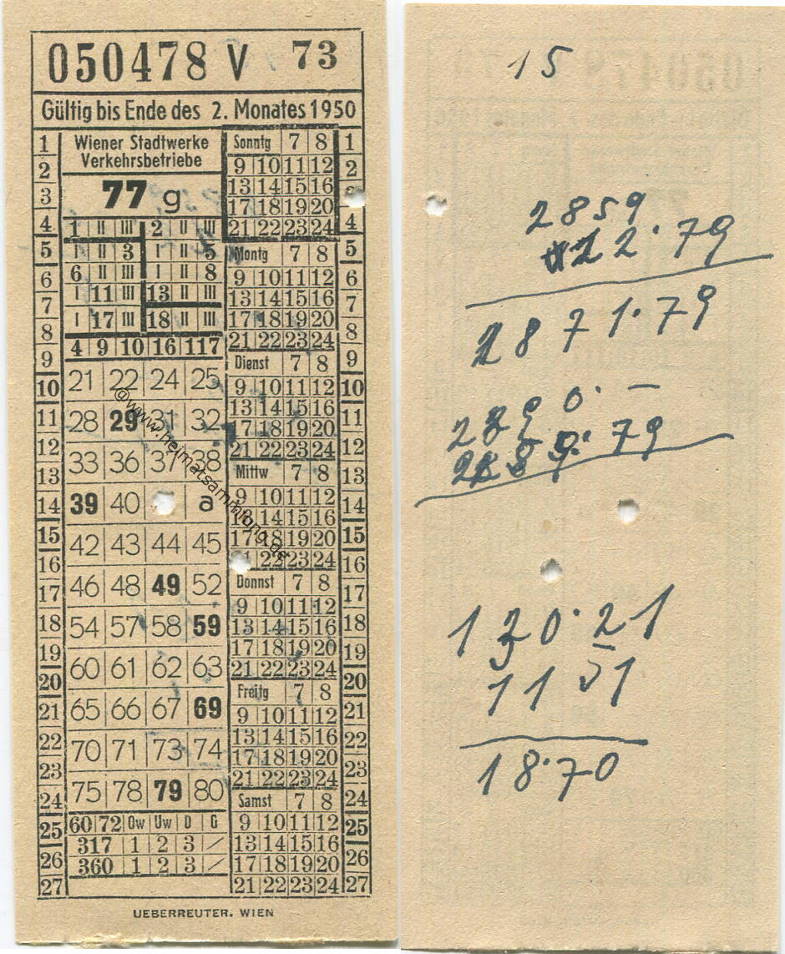 050478 V 73
Gültig bis Ende des 2. Monates 1950
Wiener Stadtwerke
Verkehrsbetriebe
77 g
1 II III 2 II III
I II 3 I II 5
6 II III I II 8
I 11 III 13 II III
I 17 III 18 II III
4 9 10 16 117
21 22 24 25
28 29 31 32
33 36 37 38
39 40 a
42 43 44 45
46 48 49 52
54 57 58 59
60 61 62 63
65 66 67 69
70 71 73 74
75 78 79 80
60 72 Ow Uw D G
317 1 2 3 /
360 1 2 3 /
Sonntg 7 8
9 10 11 12
13 14 15 16
17 18 19 20
21 22 23 24
Montg 7 8
9 10 11 12
13 14 15 16
17 18 19 20
21 22 23 24
Dienst 7 8
9 10 11 12
13 14 15 16
17 18 19 20
21 22 23 24
Mittw 7 8
9 10 11 12
14 15 16
17 18 19 20
22 23 24
Donnst 7 8
9 10 11 12
13 14 15 16
17 18 19 20
21 22 23 24
Freitg 7 8
9 10 11 12
13 14 15 16
17 18 19 20
21 22 23 24
Samst 7 8
9 10 11 12
13 14 15 16
17 18 19 20
21 22 23 24
1
2
3
4
5
6
7
8
9
10
11
12
13
14
15
16
17
18
19
20
21
22
23
24
25
26
27
1
2
4
5
6
7
8
9
10
11
12
13
14
15
16
17
18
19
20
21
22
23
24
25
26
27
©www.heimatsammlung.de
UEBERREUTER, WIEN
15
2859
12.79
2871.79
2890.–
79
21
18.70